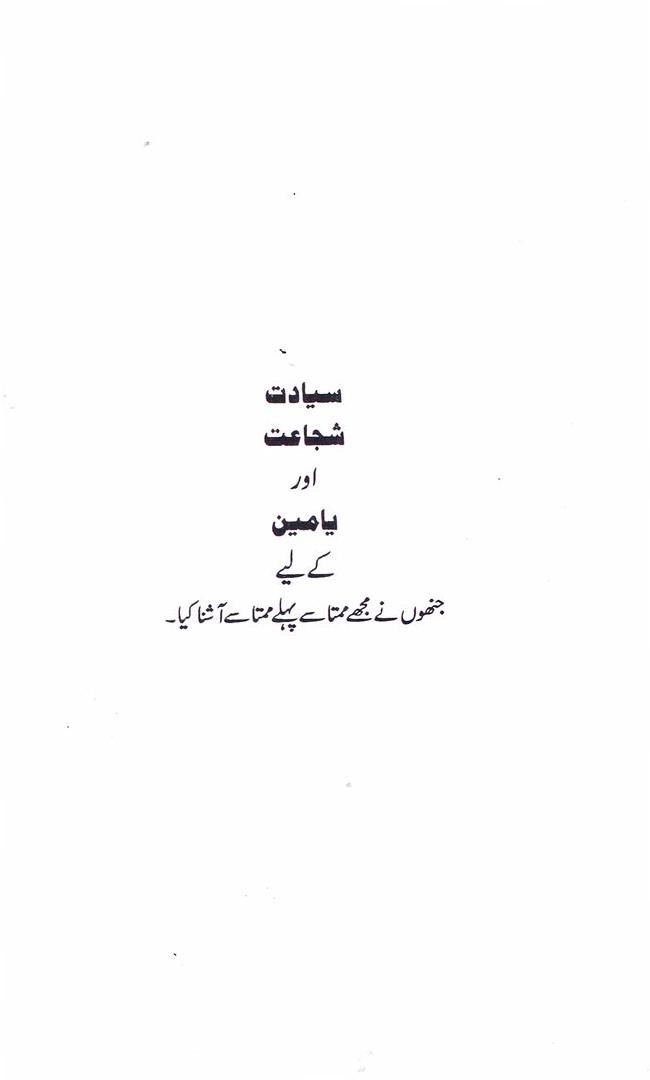 سیادت
شجاعت
اور
یامین
کے لیے
جنھوں نے مجھے ممتا سے پہلے ممتا سے آشنا کیا۔